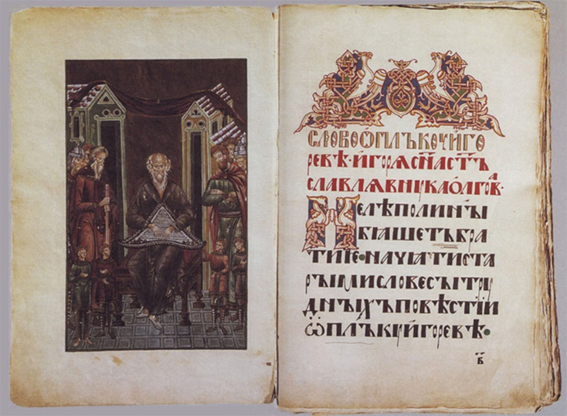 СЛОВО Ѿ ПЛЪКѸ ИГО
РЕВѢ · ИГОРѦ СН҃А СТЪ
СЛАВЛѦ ВНѸКА ОЛГОВ
НЕ ЛѢПО ЛИ НЫ
БѦШЕТЪ БРА
ТИЕ · НАЧѦТИ СТА
РЫМИ СЛОВЕСЫ ТРѸ
ДНЫХЪ ПОВѢСТИИ
Ѡ ПЛЪКѸ ИГОРЕВѢ ·
В҃